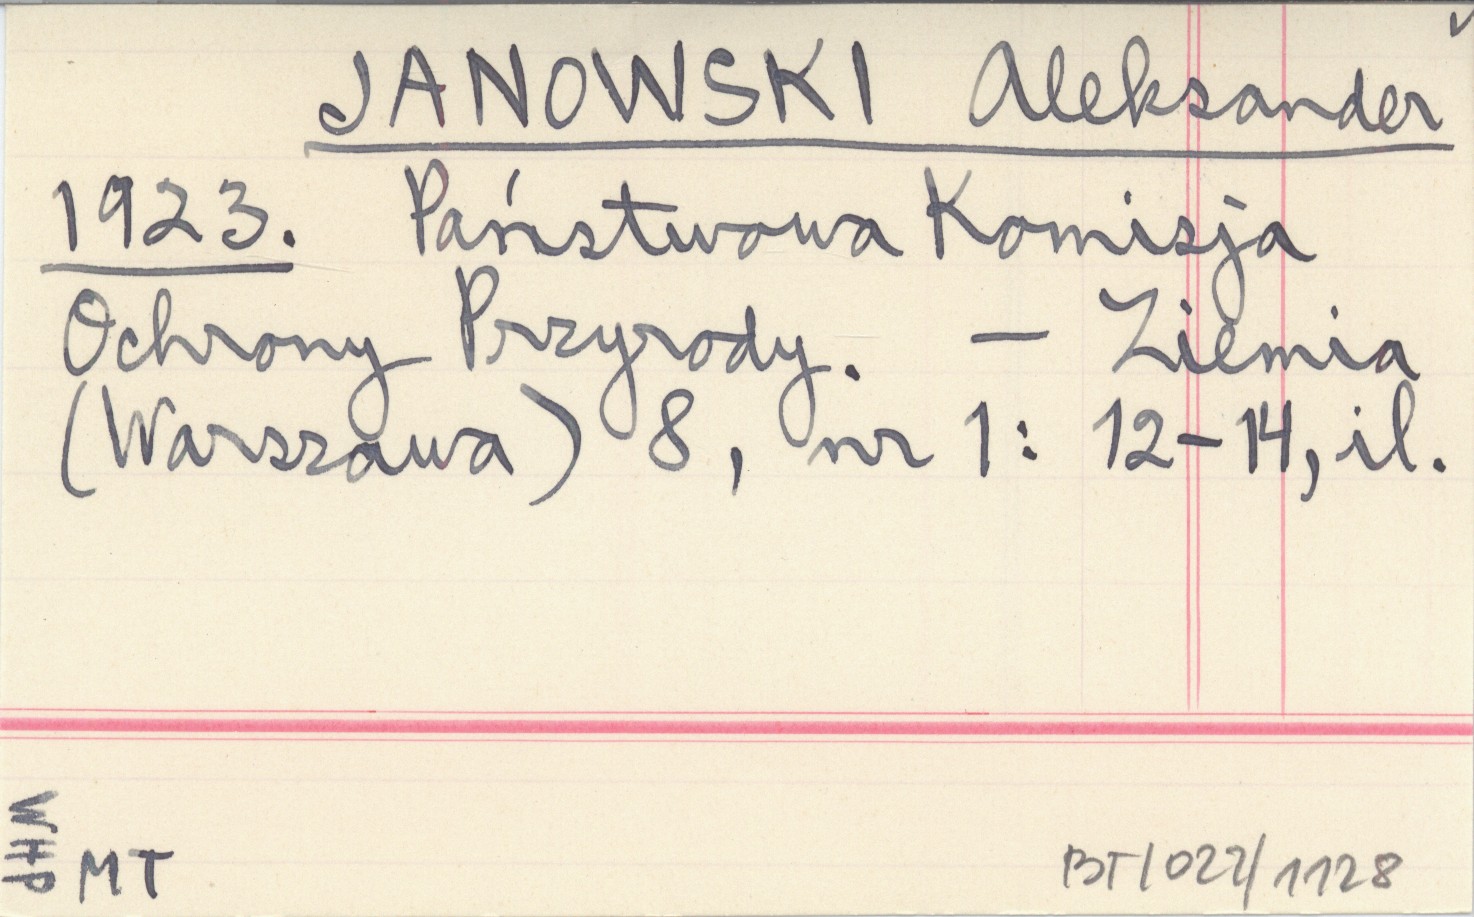 JANOWSKI Aleksander
1923. Państwowa Komisja
Ochrony Przyrody. — Ziemia
(Warszawa) 8, nr 1: 12-14, il.
WHP
MT
BT/022/1128